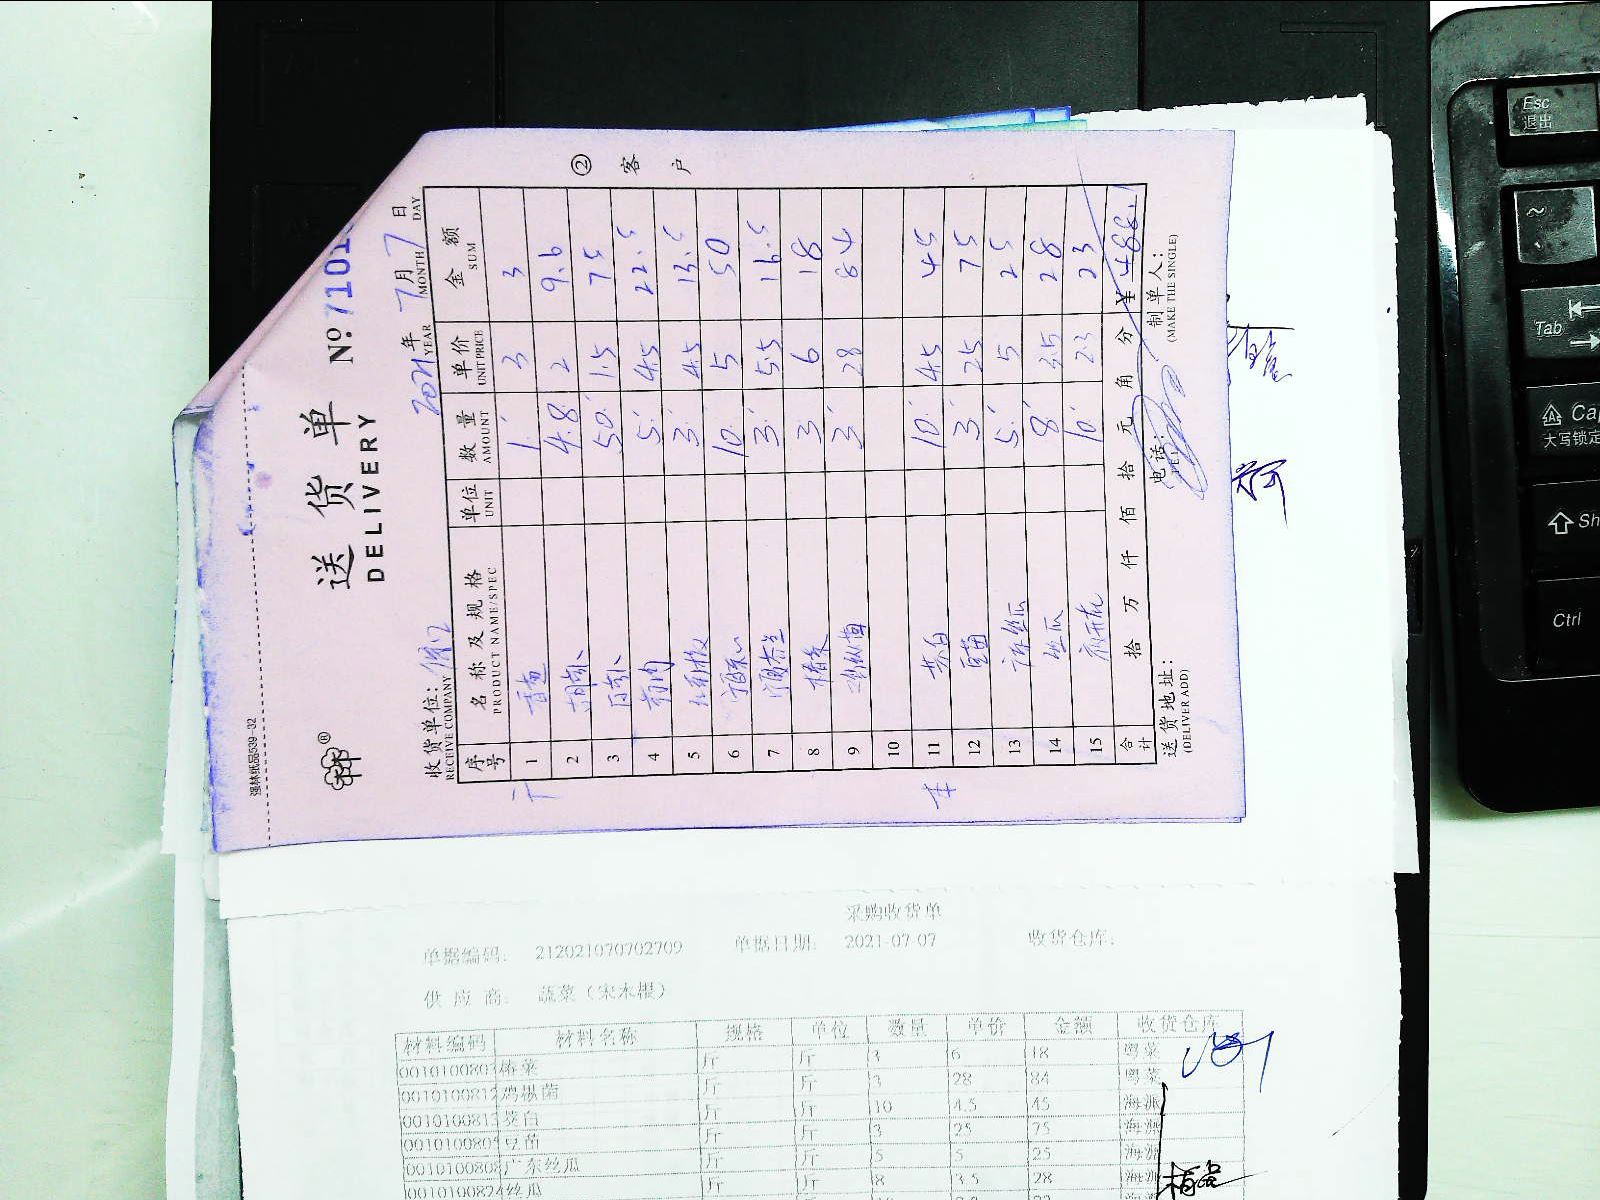 强林纸品539-32
送货单
DELIVERY
No 7101
2021年 7月 7日
YEAR MONTH DAY
② 客 户
收货单位:
RECEIVE COMPANY
序号 名称及规格 单位 数量 单价 金额
PRODUCT NAME/SPEC UNIT AMOUNT UNIT PRICE SUM
1 3 3
1 1 3 3
2 胡萝卜 4.8 2 9.6
3 白萝卜 50 1.5 75
4 5 4.5 22.5
5 3 4.5 13.5
6 10 5 50
7 3 5.5 16.5
8 椿菜 3 6 18
9 鸡枞菌 3 28 84
10
11 茭白 10 4.5 45
12 豆苗 3 25 75
13 广东丝瓜 5 5 25
14 丝瓜 8 3.5 28
15 10 2.3 23
合计 拾 万 仟 佰 拾 元 角 分 ¥ 488.1
送货地址: 电话: 制单人:
(DELIVER ADD) TEL (MAKE THE SINGLE)
采购收货单
单据编码: 212021070702709 单据日期: 2021-07-07 收货仓库:
供应商: 蔬菜(宋木根)
材料编码 材料名称 规格 单位 数量 单价 金额 收货仓库
00101008 椿菜 斤 斤 3 6 18 粤菜
00101008 鸡枞菌 斤 斤 3 28 84 粤菜
00101008 茭白 斤 斤 10 4.5 45 海派
00101008 豆苗 斤 斤 3 25 75 海派
00101008 广东丝瓜 斤 斤 5 5 25 海派
00101008 丝瓜 斤 斤 8 3.5 28 海派
Esc
退出
~
Tab
Cap
大写锁定
Sh
Ctrl